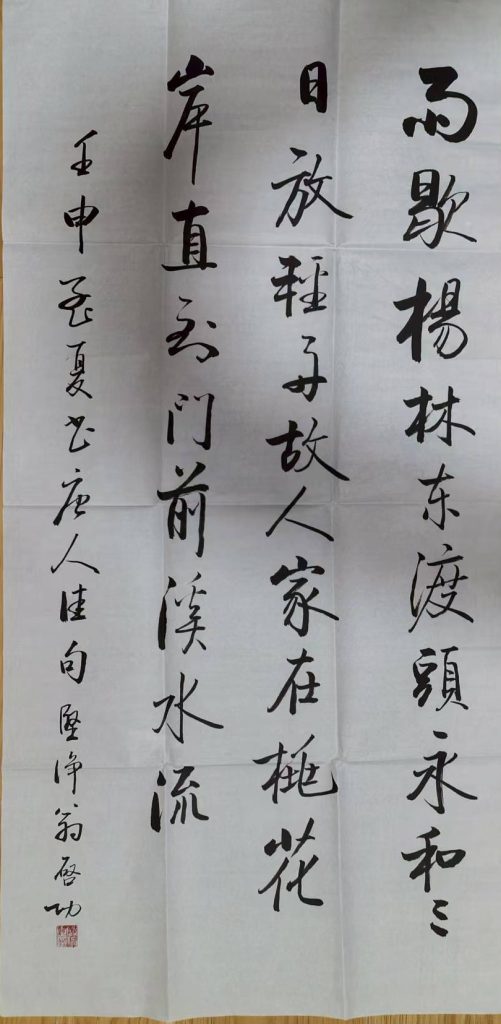 雨歇楊林东渡頭永和三
日放輕舟故人家在桃花
岸直到門前溪水流
壬申夏书唐人佳句 堅净翁啓功